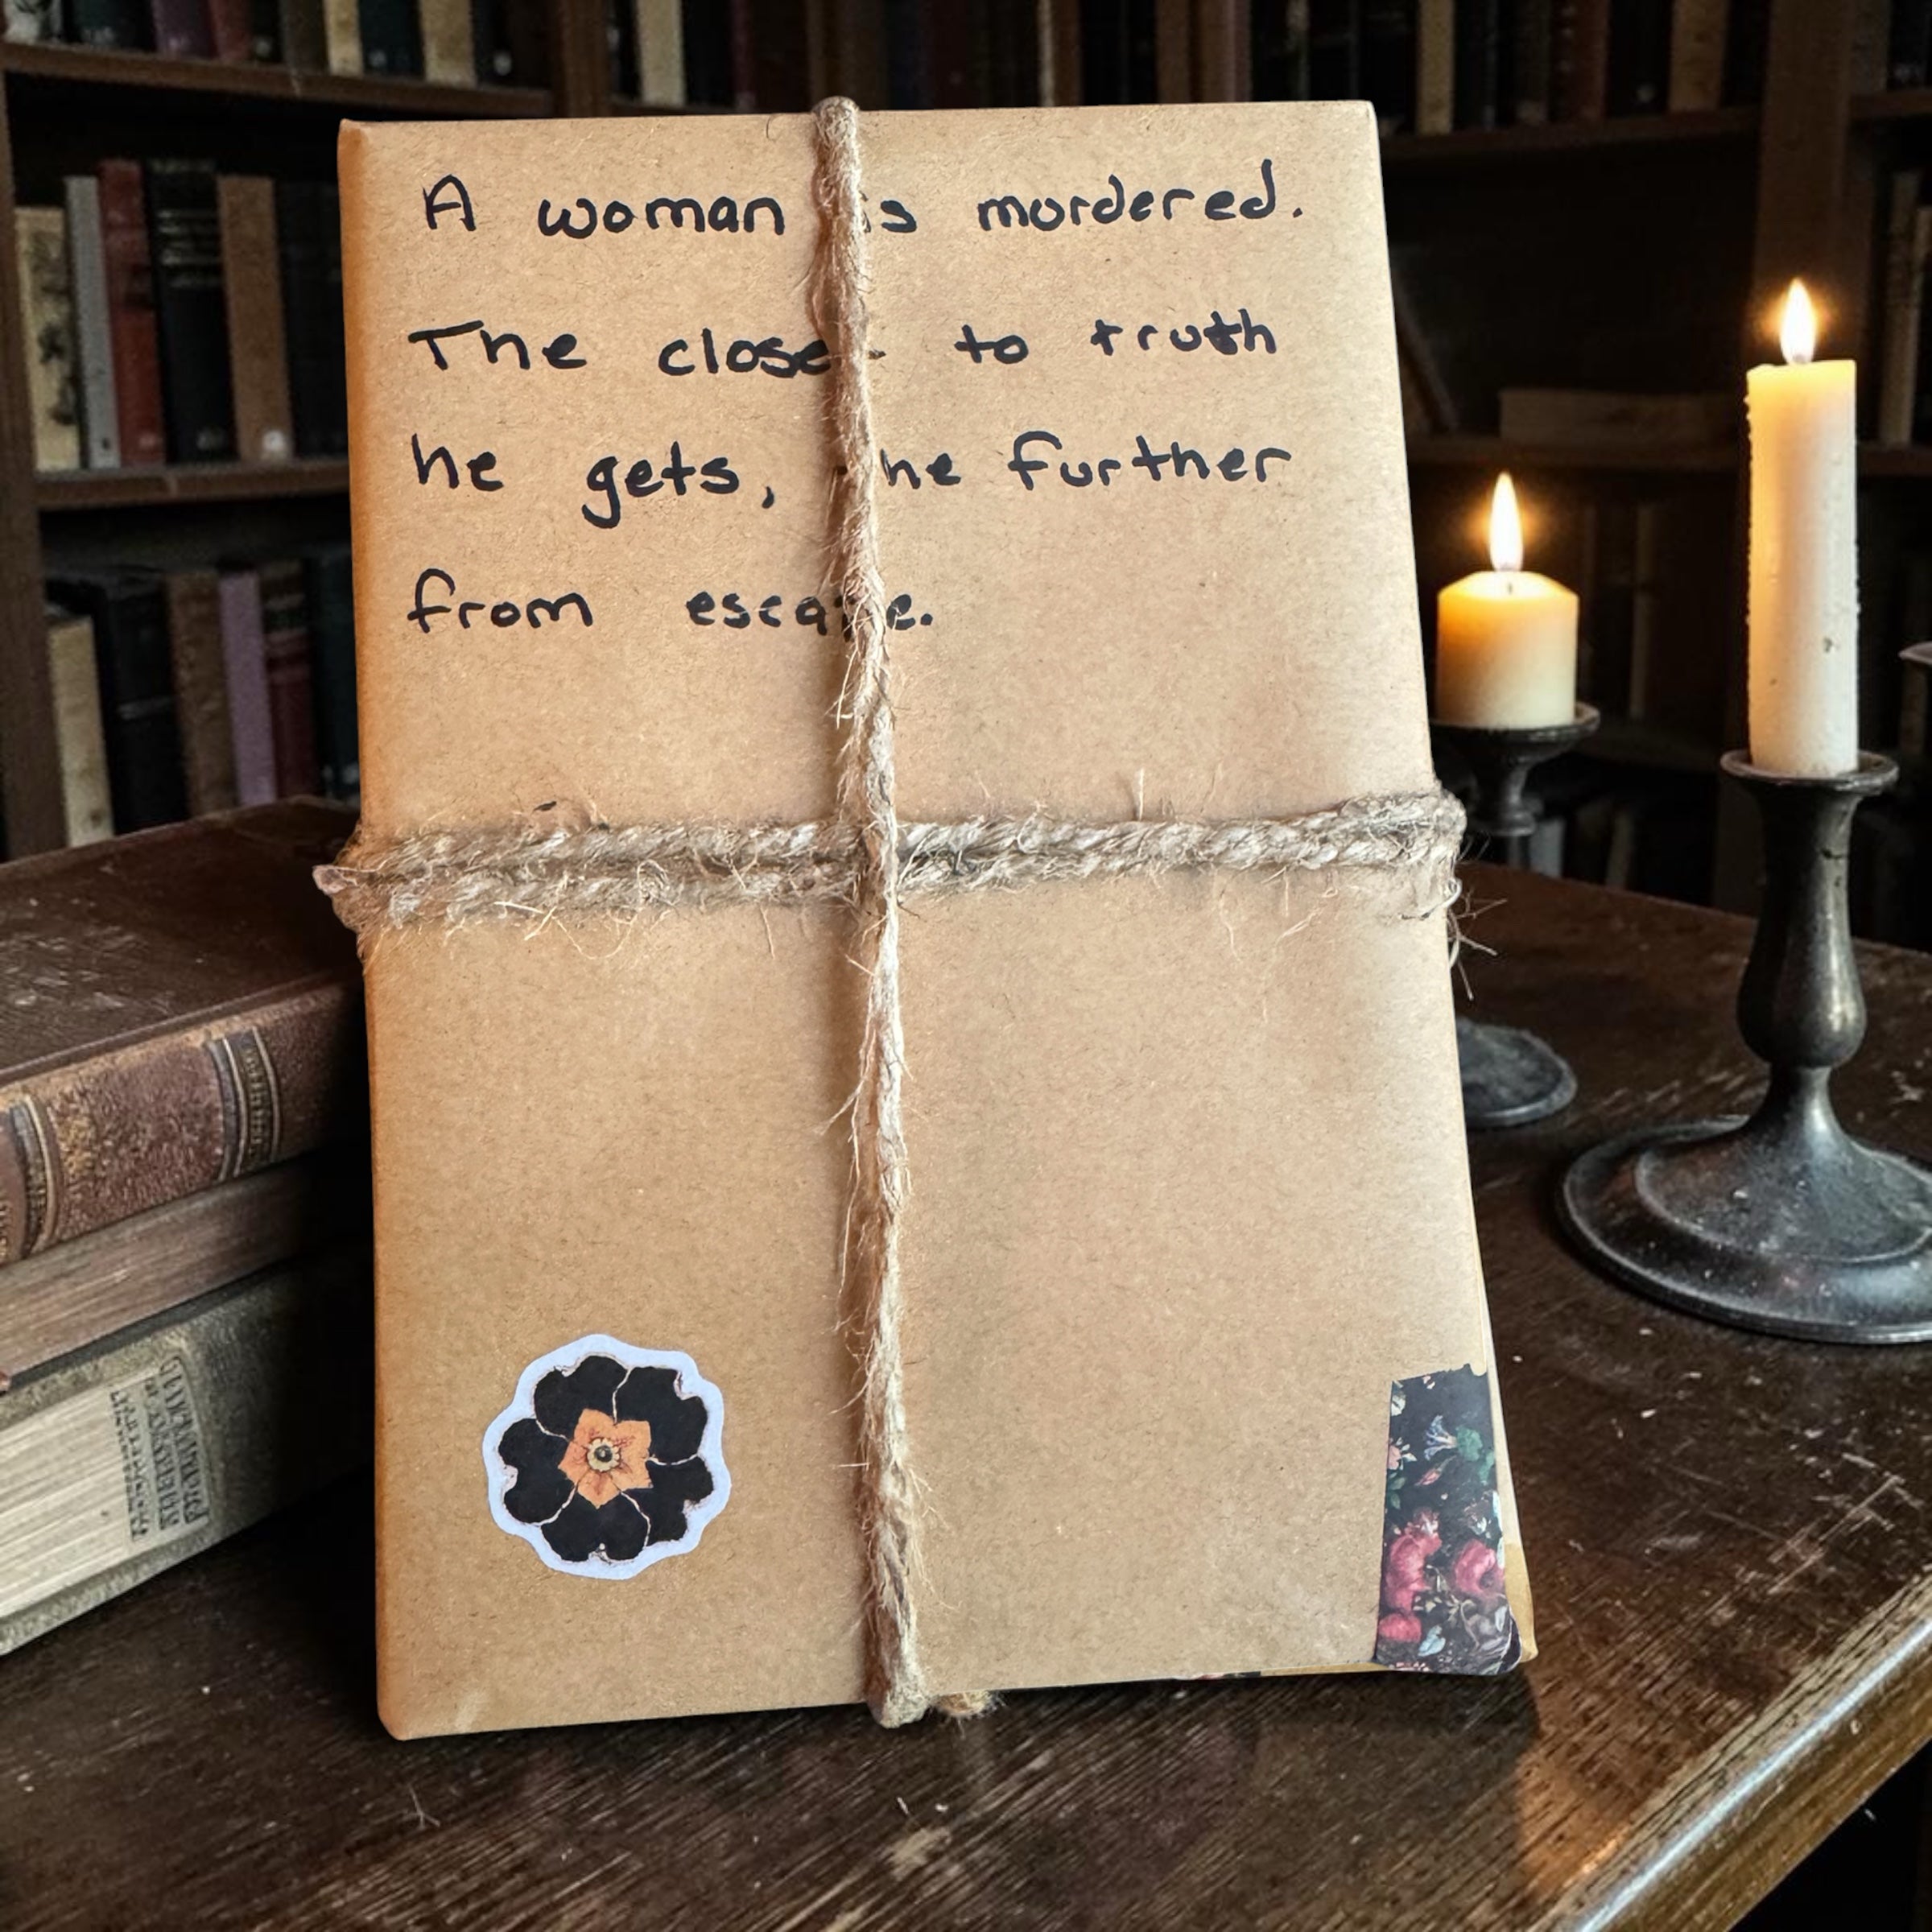 A woman is mordered.
The closer to truth
he gets, the further
from escape.